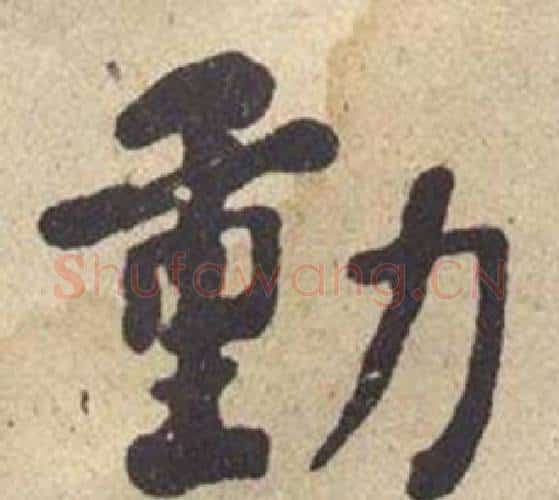 動
Shufawang.CN